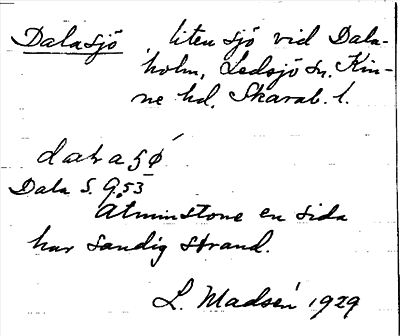 Dalasjö liten sjö vid Dala-
holm, Ledsjö sn, Kin-
ne hd, Skarab. l.
Dala S. 9.53
Åtminstone en sida
har sandig strand.
L. Madsén 1929